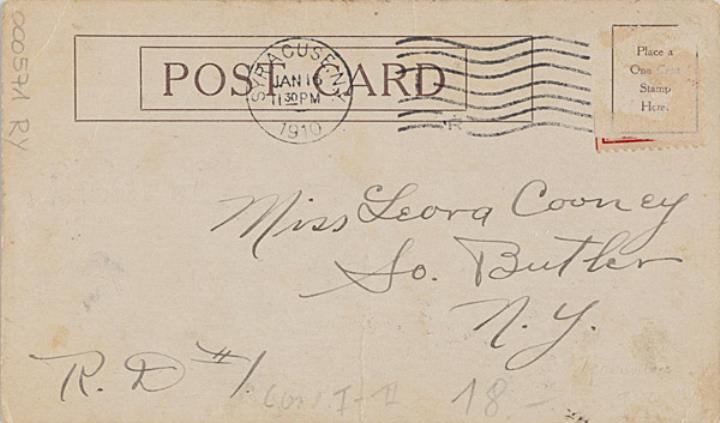 POST CARD
SYRACUSE, N.Y.
JAN 16
11 30 PM
1910
Place a
One Cent
Stamp
Here.
Miss Leora Cooney
So. Butler
N. Y.
R. D #1.
18-
00057A RY